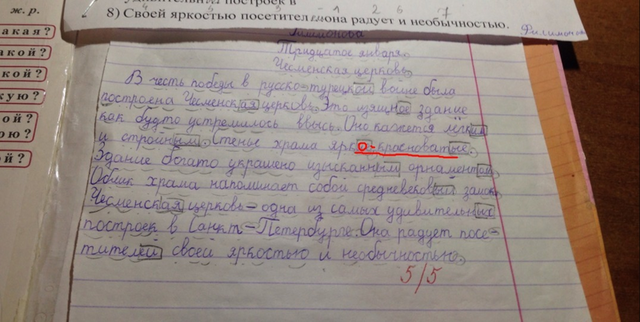 удивительных построек в
8) Своей яркостью посетител она радует и необычностью.
ж. р.
акая?
акой?
кой?
кую?
ой?
ою?
й?
Тридцатое января.
Чесменская церковь.
В честь победы в русско-турецкой войне была
построена Чесменская церковь. Это изящное здание
как будто устремилось ввысь. Оно кажется лёгким
и стройным. Стены храма ярко-красноватые.
Здание богато украшено изысканным орнаментом.
Облик храма напоминает собой средневековый замок.
Чесменская церковь - одна из самых удивительных
построек в Санкт-Петербурге. Она радует посе-
тителей своей яркостью и необычностью.
5/5